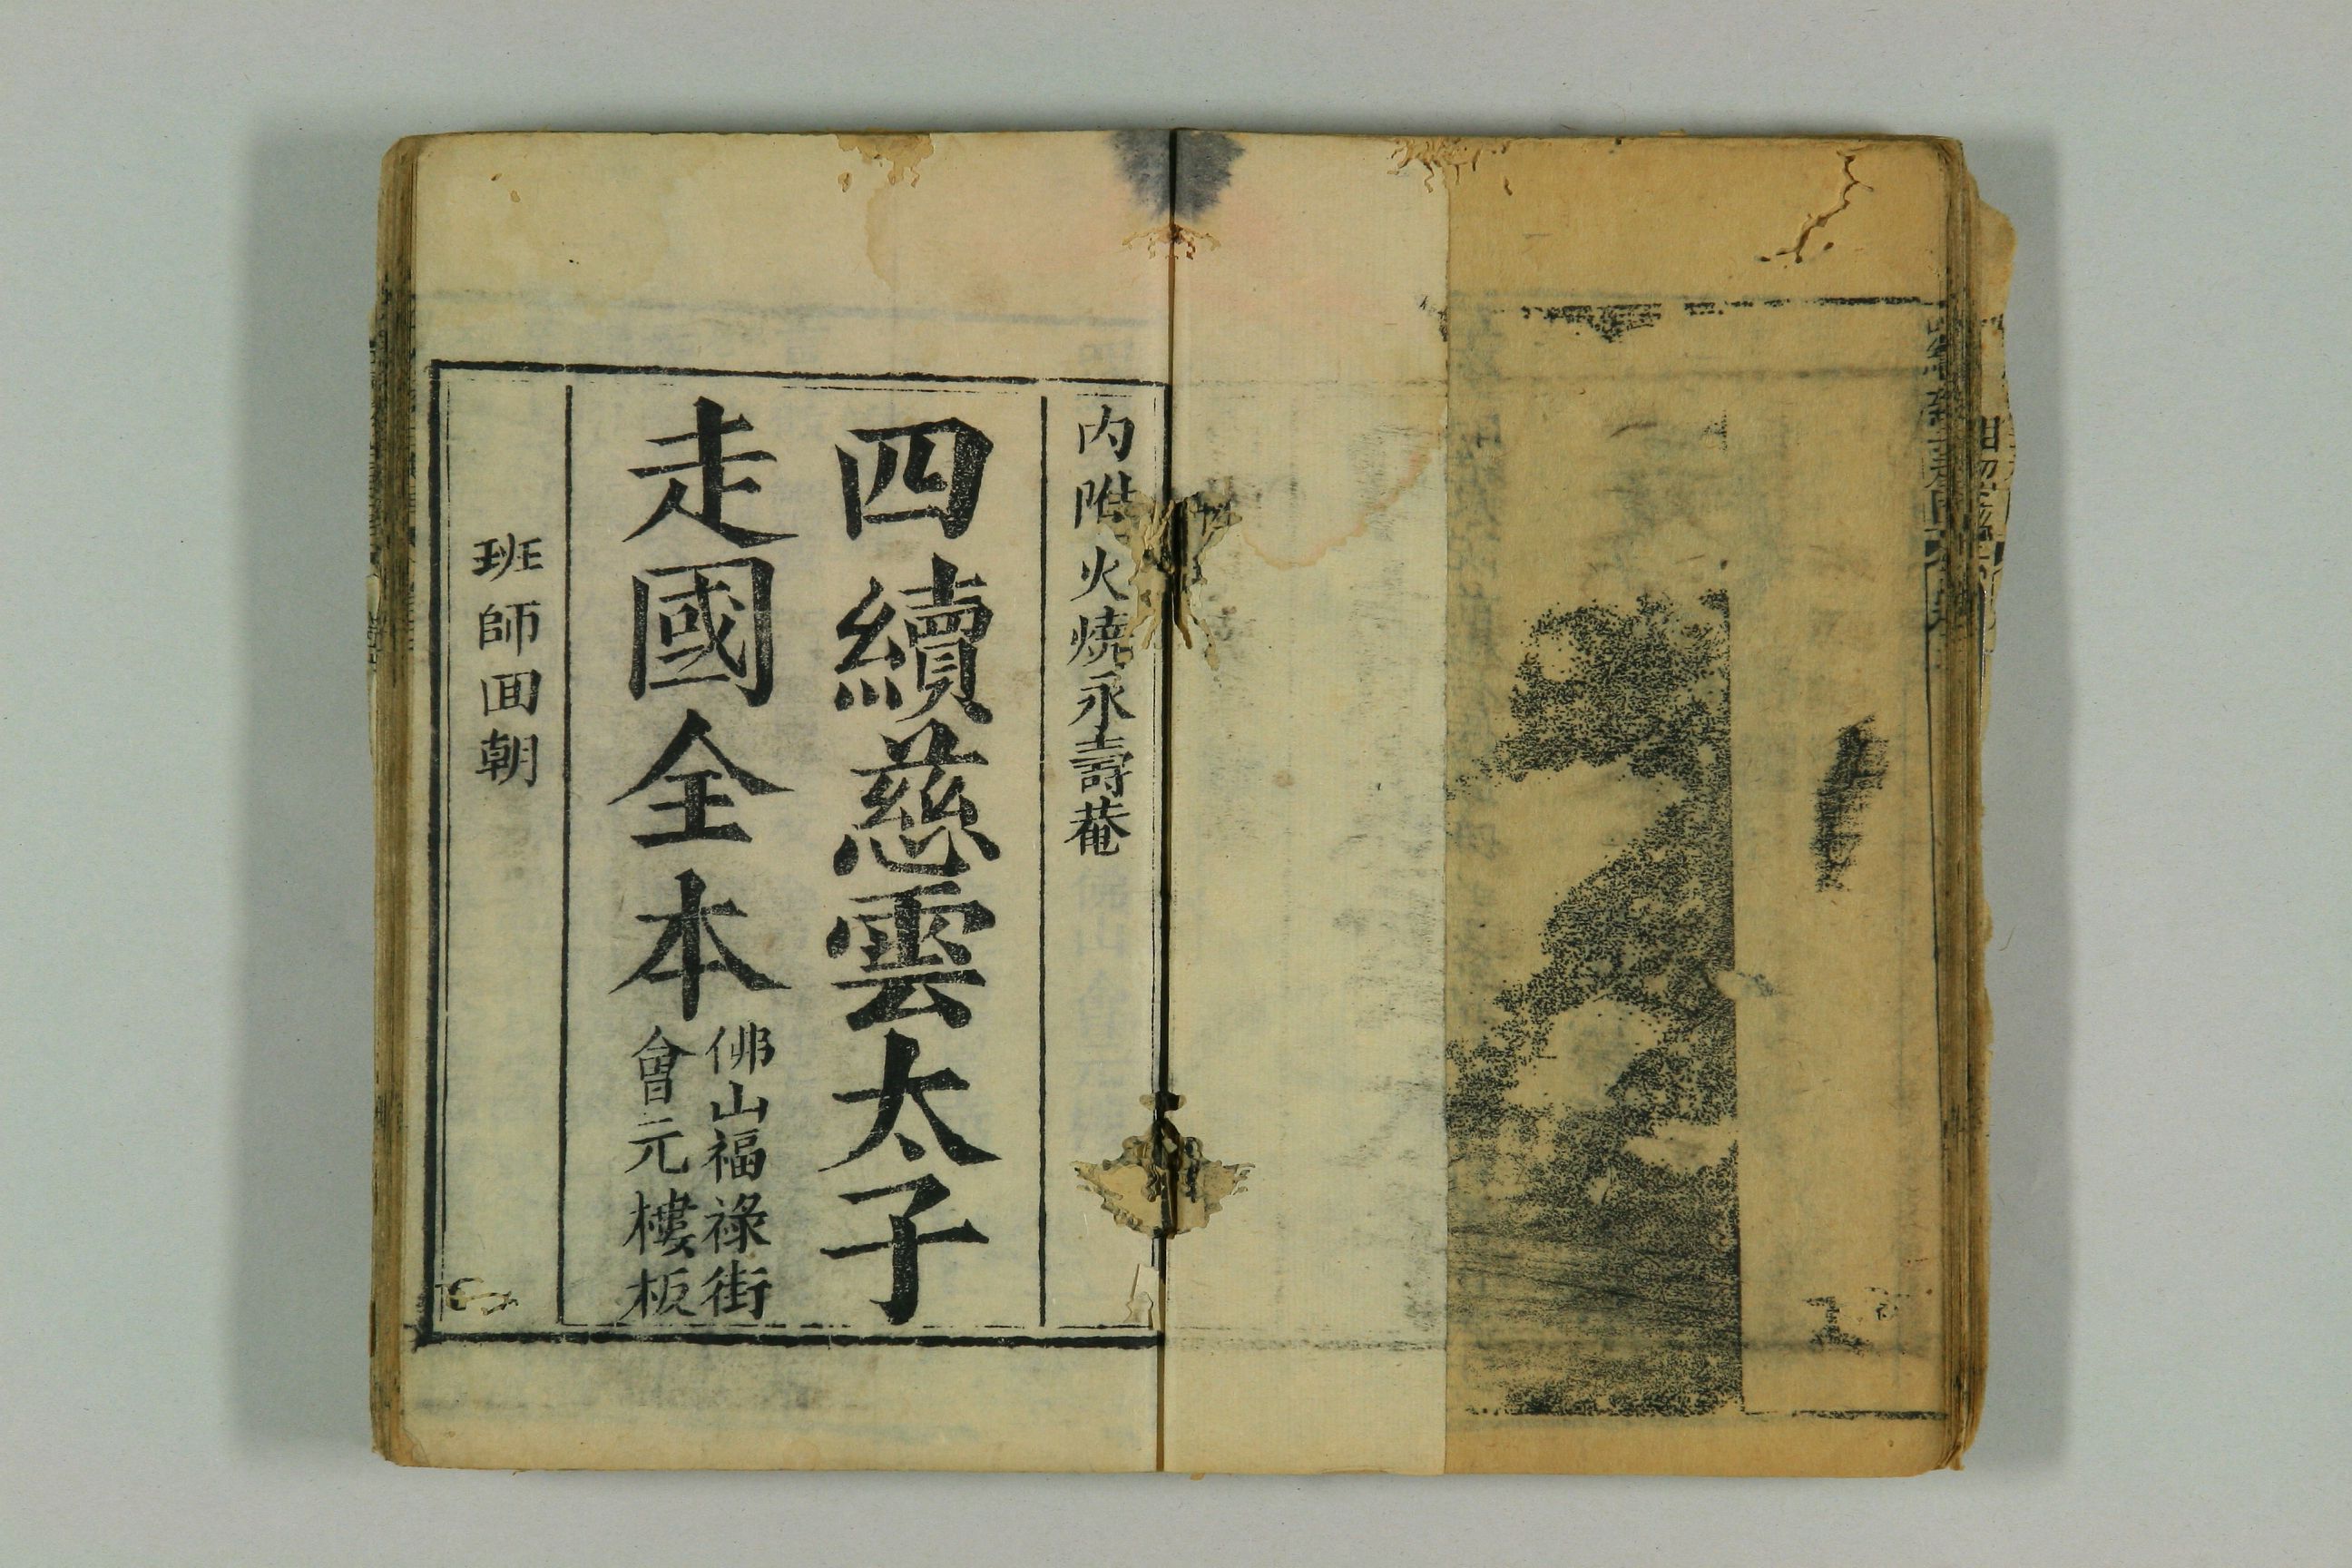 內附火燒永壽菴
四續慈雲太子
走國全本
佛山福祿街
會元樓板
班師回朝